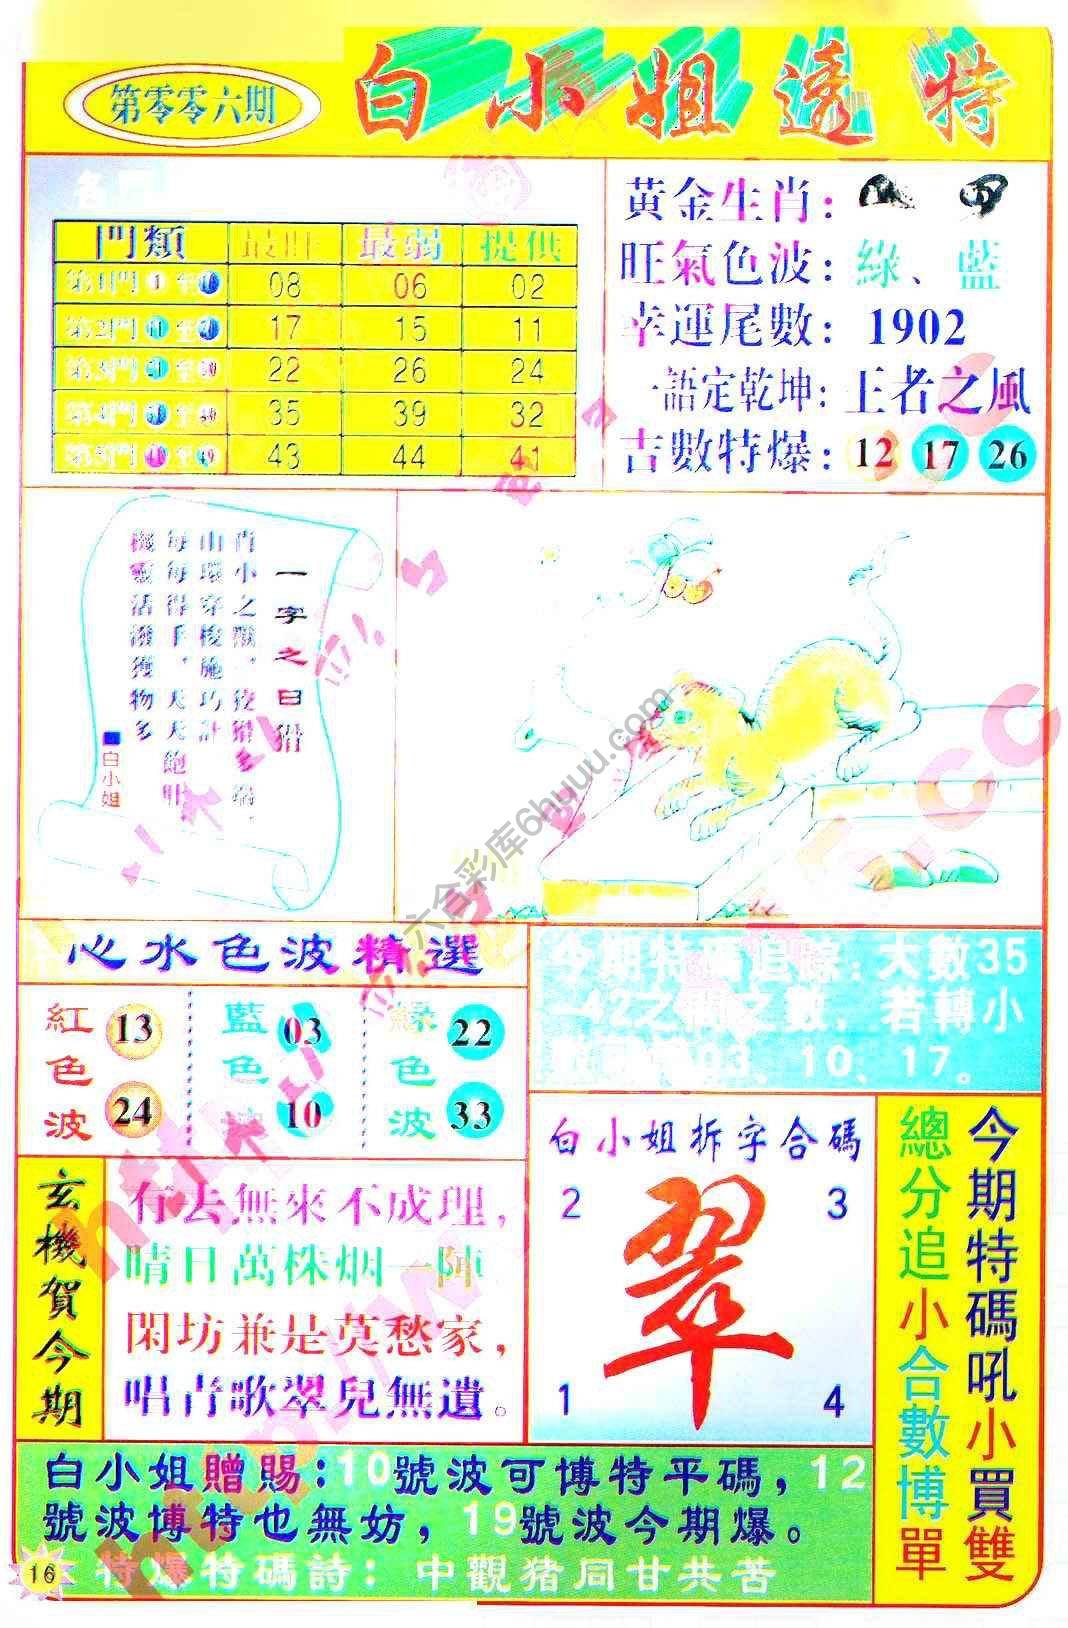 第零零六期
白小姐透特
門類 最旺 最弱 提供
第1門 1 至 10 08 06 02
第2門 11 至 17 15 11
第3門 21 至 22 26 24
第4門 至 35 39 32
第5門 至 49 43 44 41
黃金生肖:
旺氣色波: 綠、藍
幸運尾數: 1902
一語定乾坤: 王者之風
吉數特爆: 12 17 26
一字之曰猾
山環穿梭施巧計
機靈活潑獲物多
白小姐
心水色波精選
紅色波 13 24
藍色波 03 10
綠色波 22 33
今期特碼追踪:大數35
-42之間之數，若轉小
03、10、17。
玄機賀今期
有去無來不成理，
晴日萬株烟一陣
閑坊兼是莫愁家，
唱青歌翠兒無遺。
白小姐拆字合碼
2 3
翠
1 4
今期特碼吼小買雙
總分追小合數博單
白小姐贈賜:10號波可博特平碼，12
號波博特也無妨，19號波今期爆。
特爆特碼詩: 中觀猪同甘共苦
16
六合彩库6huuu.com